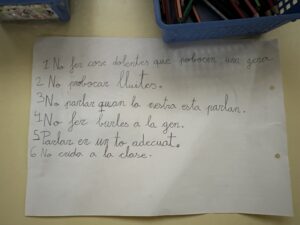 1 No fer cose dolentes que probocen una gera.
2 No probocar lluites.
3 No parlar quan la mestra esta parlan.
4 No fer burles a la gen.
5 Parlar en un to adecuat.
6 No crida a la clase.